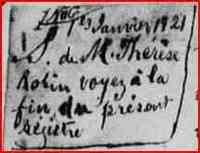 13 Janvier 1821
S. de M. Therèse
Robin voyez à la
fin du présent
régistre